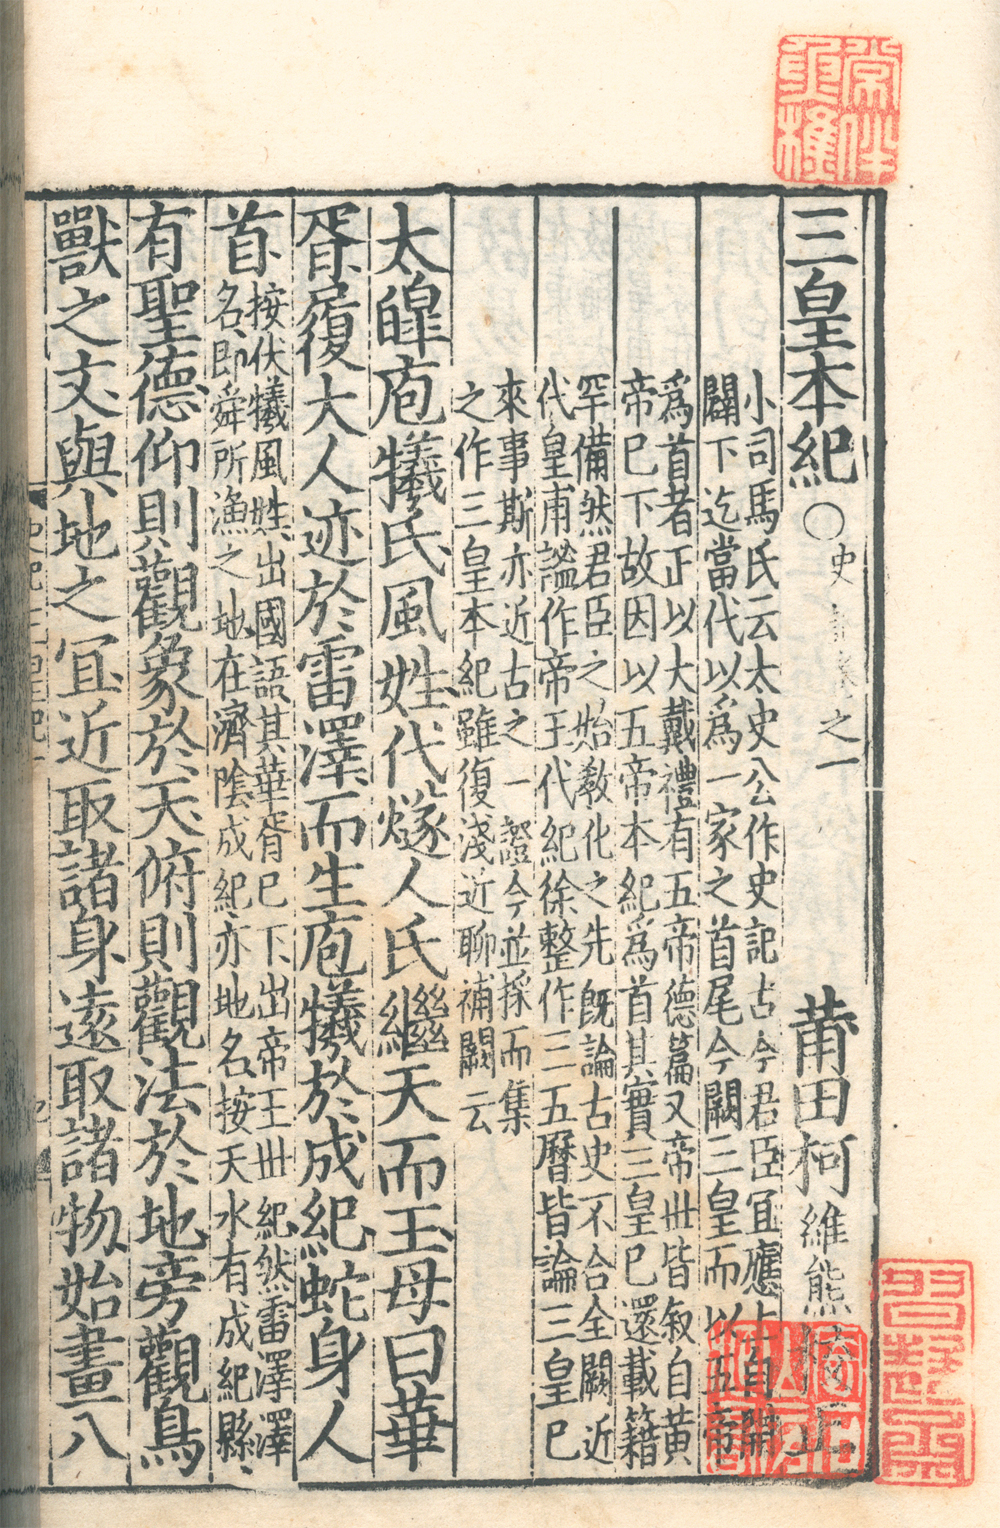 三皇本紀〇史記卷之一
莆田柯維熊校正
小司馬氏云太史公作史記古今君臣宜應上自開
闢下迄當代以爲一家之首尾今闕三皇而以五帝
爲首者正以大戴禮有五帝德篇又帝丗皆叙自黃
帝巳下故因以五帝本紀爲首其實三皇巳還載籍
罕備然君臣之始敎化之先旣論古史不合全闕近
代皇甫謐作帝王代紀徐整作三五曆皆論三皇巳
來事斯亦近古之一證今並採而集
之作三皇本紀雖復淺近聊補闕云
太皥庖犧氏風姓代燧人氏繼天而王母曰華
胥履大人迹於雷澤而生庖犧於成紀蛇身人
首
按伏犧風姓出國語其華胥巳下出帝王丗紀然雷澤澤
名即舜所漁之地在濟陰成紀亦地名按天水有成紀縣
有聖德仰則觀象於天俯則觀法於地旁觀鳥
獸之文與地之宜近取諸身遠取諸物始畫八